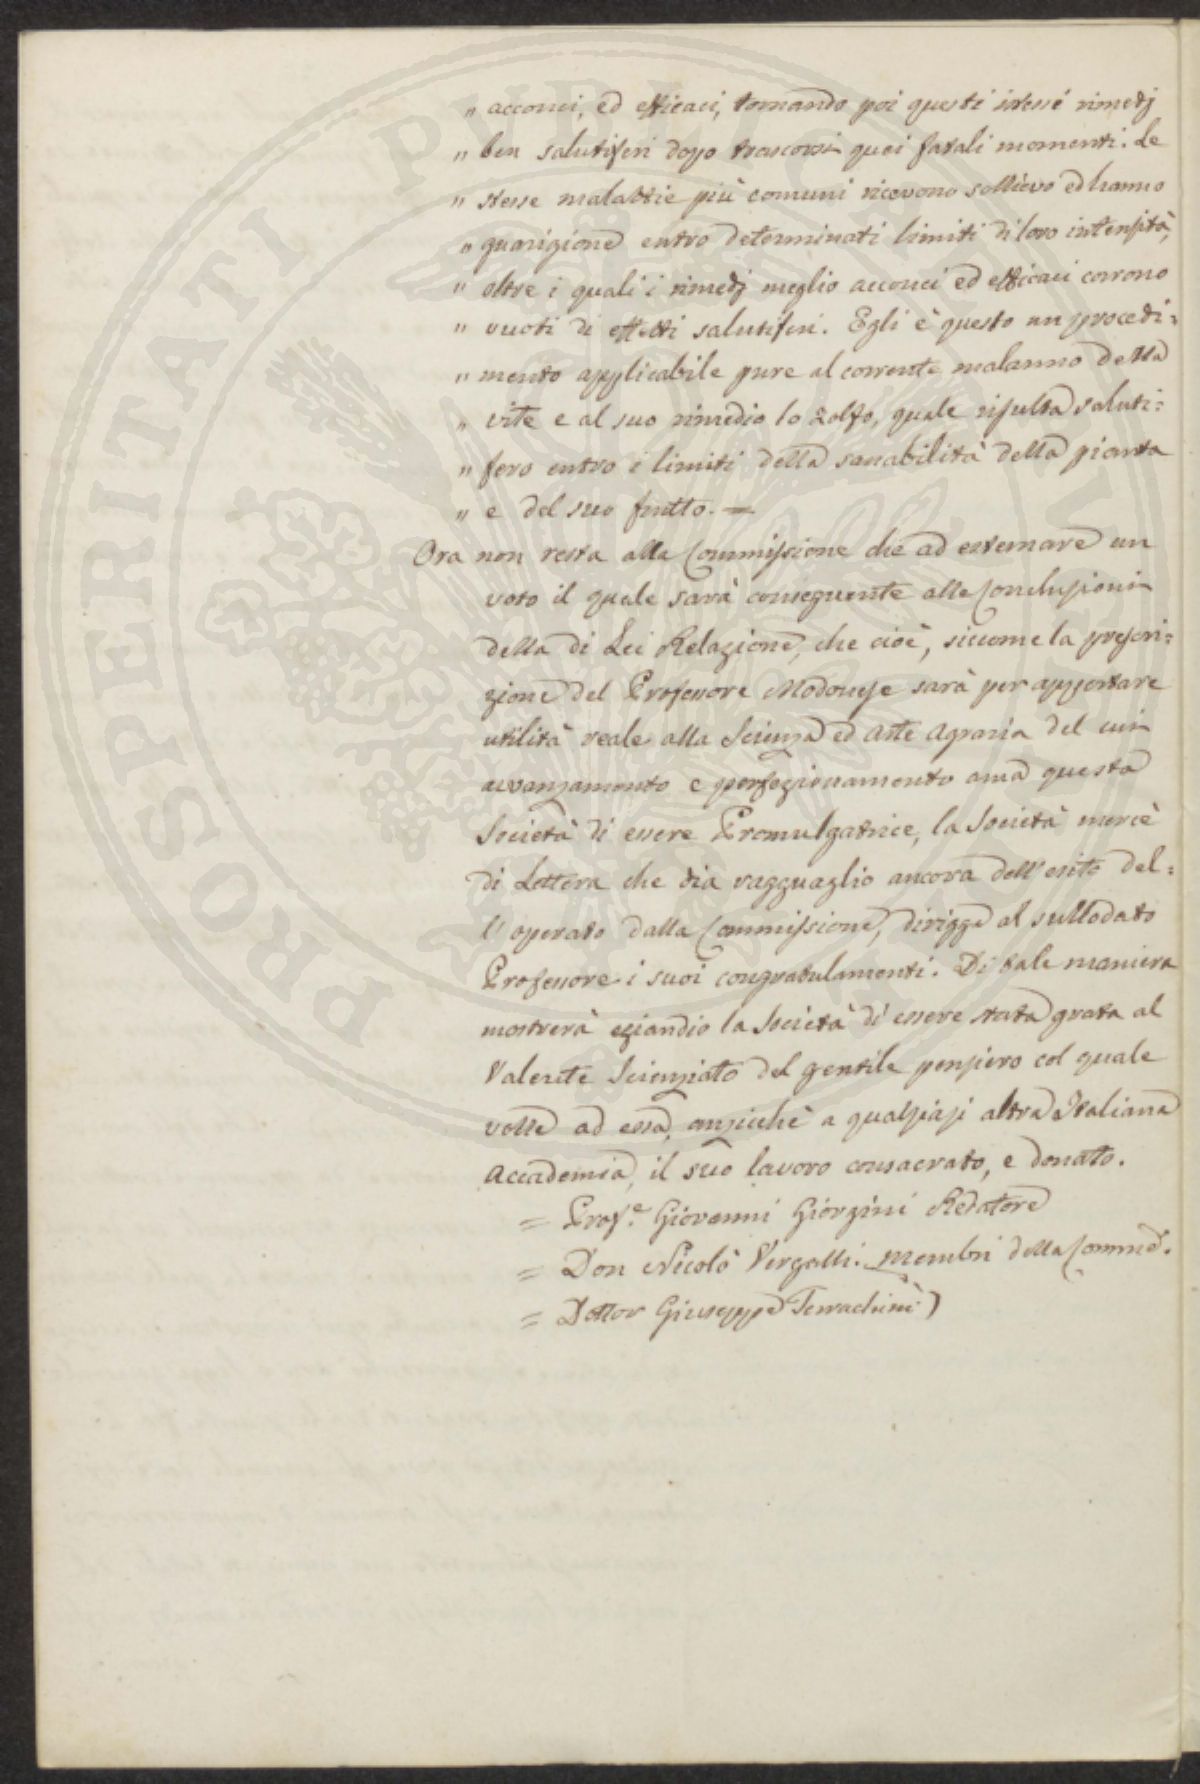 " acconci, ed efficaci, tornando poi questi istessi rimedj
" ben salutiferi dopo trascorsi quei fatali momenti. Le
" stesse malattie più comuni ricevono sollievo ed hanno
" guarigione entro determinati limiti di loro intensità,
" oltre i quali i rimedj meglio acconci ed efficaci corrono
" vuoti di effetti salutiferi. Egli è questo un procedi=
" mento applicabile pure al corrente malanno della
" vite e al suo rimedio lo zolfo, quale risulta saluti=
" fero entro i limiti della sanabilità della pianta
" e del suo frutto. =
Ora non resta alla Commissione che ad esternare un
voto il quale sarà conseguente alle Conclusioni
della di Lei Relazione, che cioè, siccome la prescri=
zione del Professore Modonese sarà per apportare
utilità reale alla Scienza ed Arte Agraria del cui
avvanzamento e perfezionamento ama questa
Società di essere Promulgatrice, la Società mercè
di Lettera che dia ragguaglio ancora dell'esito del=
l'operato dalla Commissione, dirigga al sullodato
Professore i suoi congratulamenti. Di tale maniera
mostrerà eziandio la Società di essere stata grata al
Valente Scienziato del gentile pensiero col quale
volle ad essa, anzicchè a qualsiasi altra Italiana
Accademia, il suo lavoro consacrato, e donato.
= Prof.e Giovanni Giorgini Redatore
= Don Nicolò Vergalli. Membri della Commne.
= Dottor Giuseppe Terrachini )
PROSPERITATI PVBLICAE